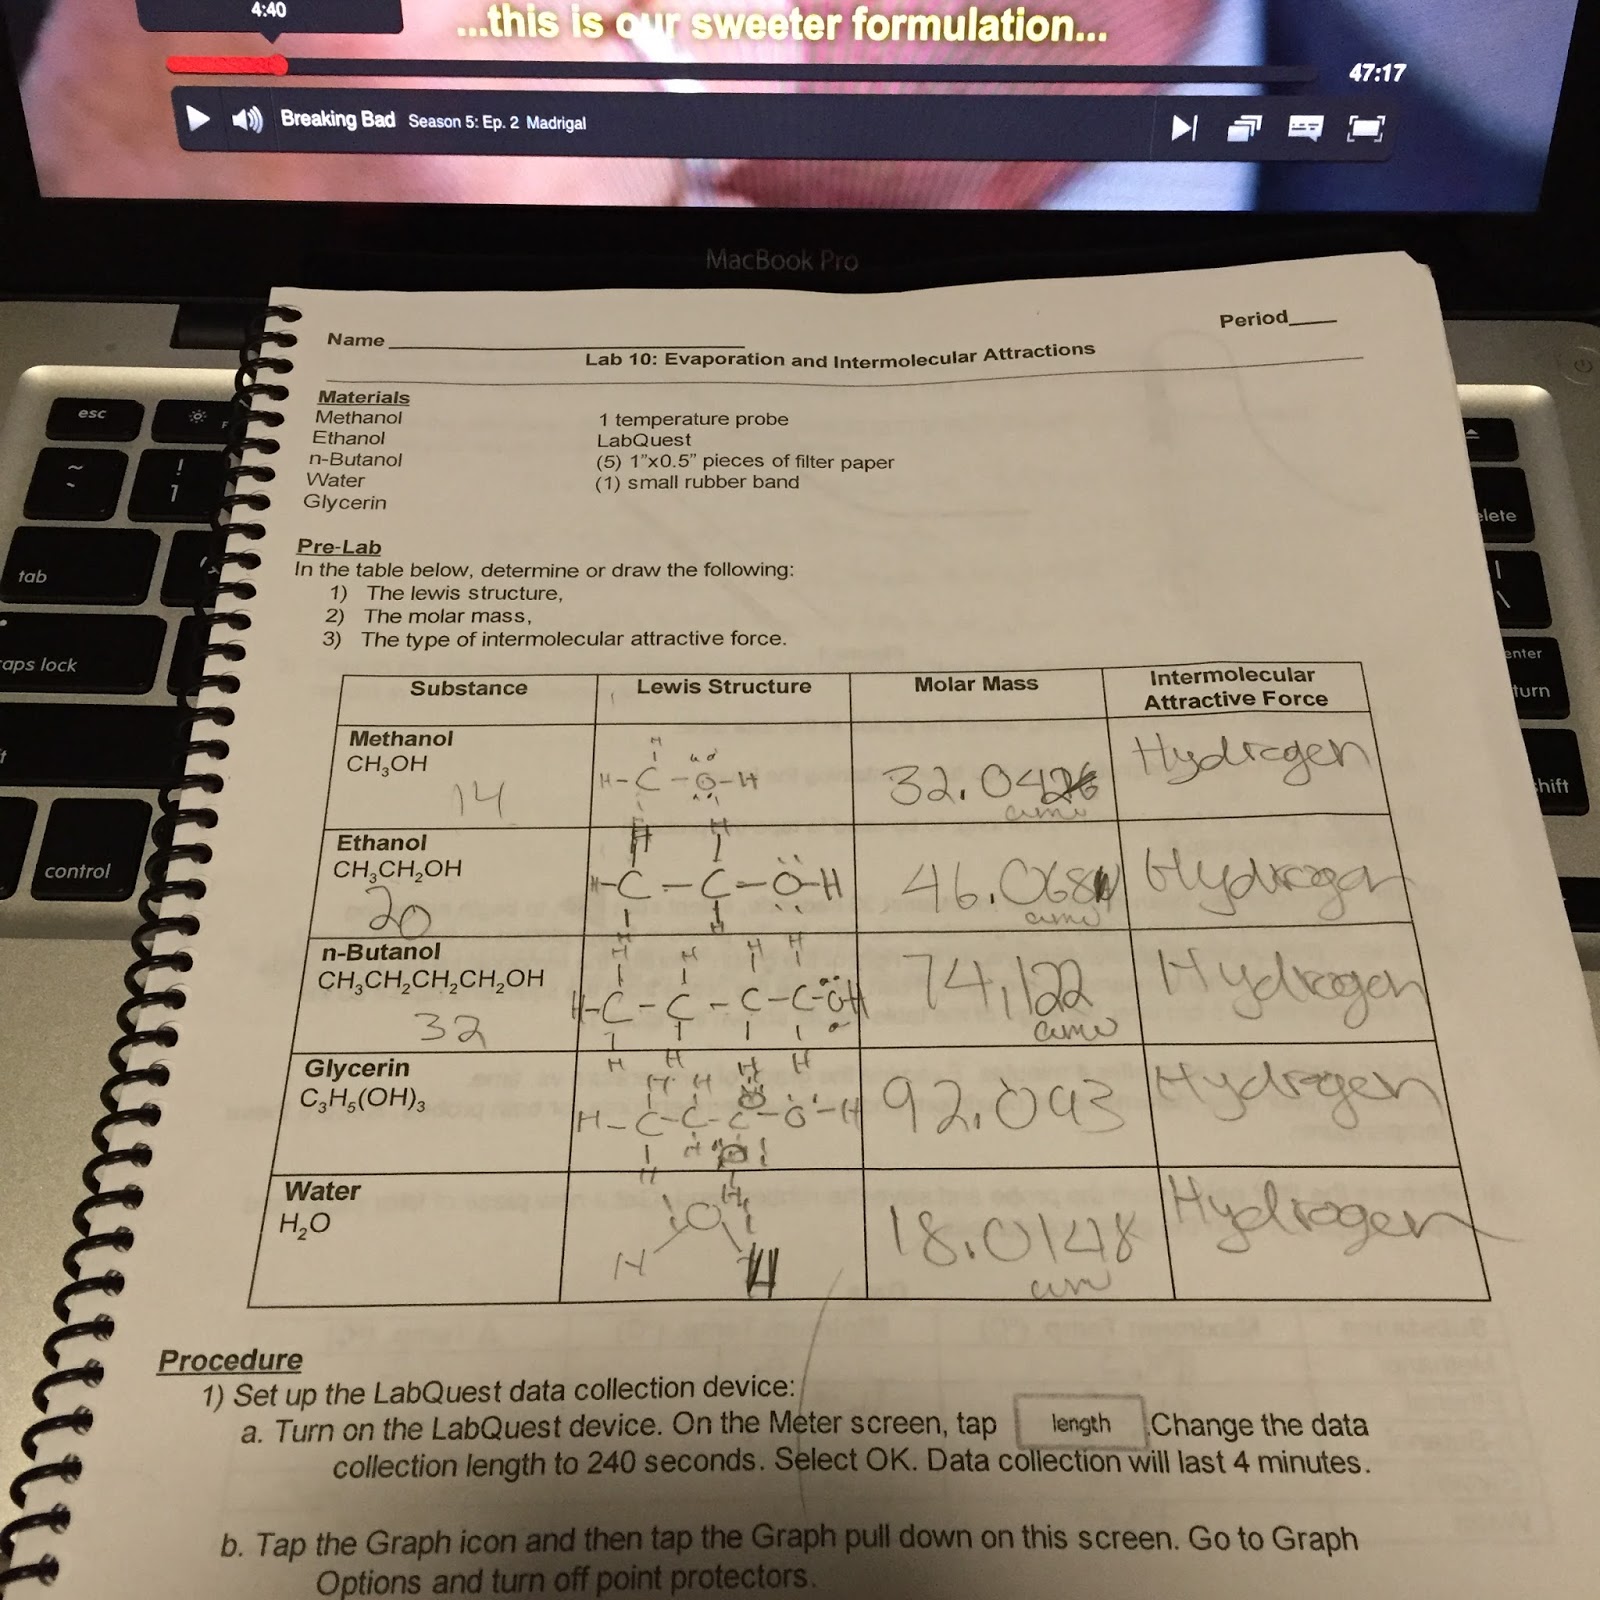 4:40
...this is our sweeter formulation...
47:17
Breaking Bad Season 5: Ep. 2 Madrigal
MacBook Pro
esc
~
!
1
tab
caps lock
control
delete
enter
return
shift
Name
Period
Lab 10: Evaporation and Intermolecular Attractions
Materials
Methanol 1 temperature probe
Ethanol LabQuest
n-Butanol (5) 1"x0.5" pieces of filter paper
Water (1) small rubber band
Glycerin
Pre-Lab
In the table below, determine or draw the following:
1) The lewis structure,
2) The molar mass,
3) The type of intermolecular attractive force.
Substance Lewis Structure Molar Mass Intermolecular Attractive Force
Methanol
CH₃OH
14
H
H-C-O-H
H
32.042
amu
Hydrogen
Ethanol
CH₃CH₂OH
20
H H
H-C-C-O-H
H H
46.068
amu
Hydrogen
n-Butanol
CH₃CH₂CH₂CH₂OH
32
H H H H
H-C-C-C-C-OH
H H H H
74.122
amu
Hydrogen
Glycerin
C₃H₅(OH)₃
H-C-C-C-O-H
92.093
Hydrogen
Water
H₂O
O
H H
18.0148
amu
Hydrogen
Procedure
1) Set up the LabQuest data collection device:
a. Turn on the LabQuest device. On the Meter screen, tap length .Change the data
collection length to 240 seconds. Select OK. Data collection will last 4 minutes.
b. Tap the Graph icon and then tap the Graph pull down on this screen. Go to Graph
Options and turn off point protectors.